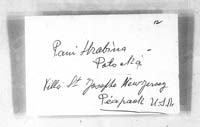 12
Pani Hrabina
Potocka
Villa St Josephs New Jersey
Peapack USA